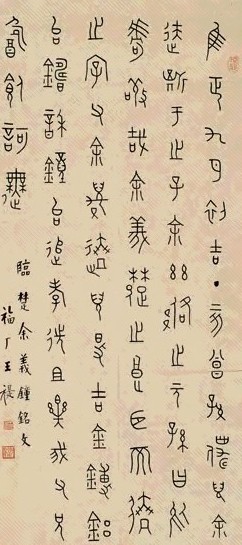 隹正九月初吉丁亥曾孫僕兒余
达斯于之子余茲佫之元孫曰於
嘑敬哉余義楚之良臣而逨
之字父余贎逨兒得吉金鎛鋁
台鑄訴鐘台追孝先且樂我父兄
飲飤訶舞
臨楚余義鍾銘文
福厂王禔